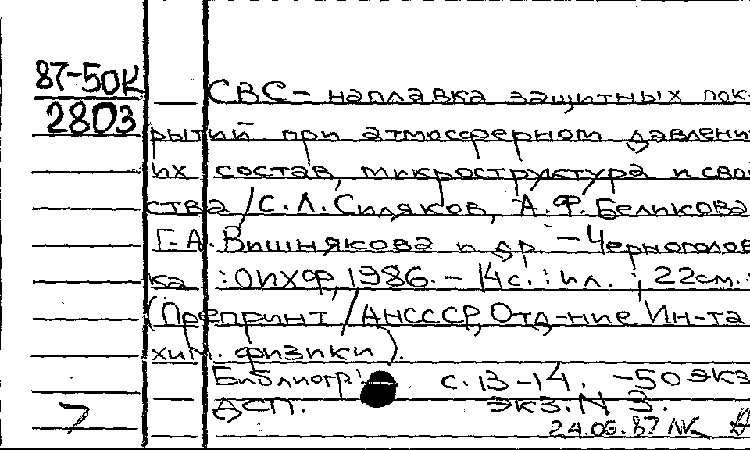 87-50К
2803
СВС-наплавка защитных пок-
рытий при атмосферном давлени
их состав, микроструктура и свой
ства / С.Л. Силяков, А.Ф. Беликова
Г.А. Вишнякова и др. - Черноголов
ка : ОИХФ, 1986. - 14 с. : ил. ; 22 см. :
(Препринт / АН СССР, Отд-ние Ин-та
хим. физики).
Библиогр: с. 13-14. - 50 экз
ДСП. Экз. N 3.
7
87